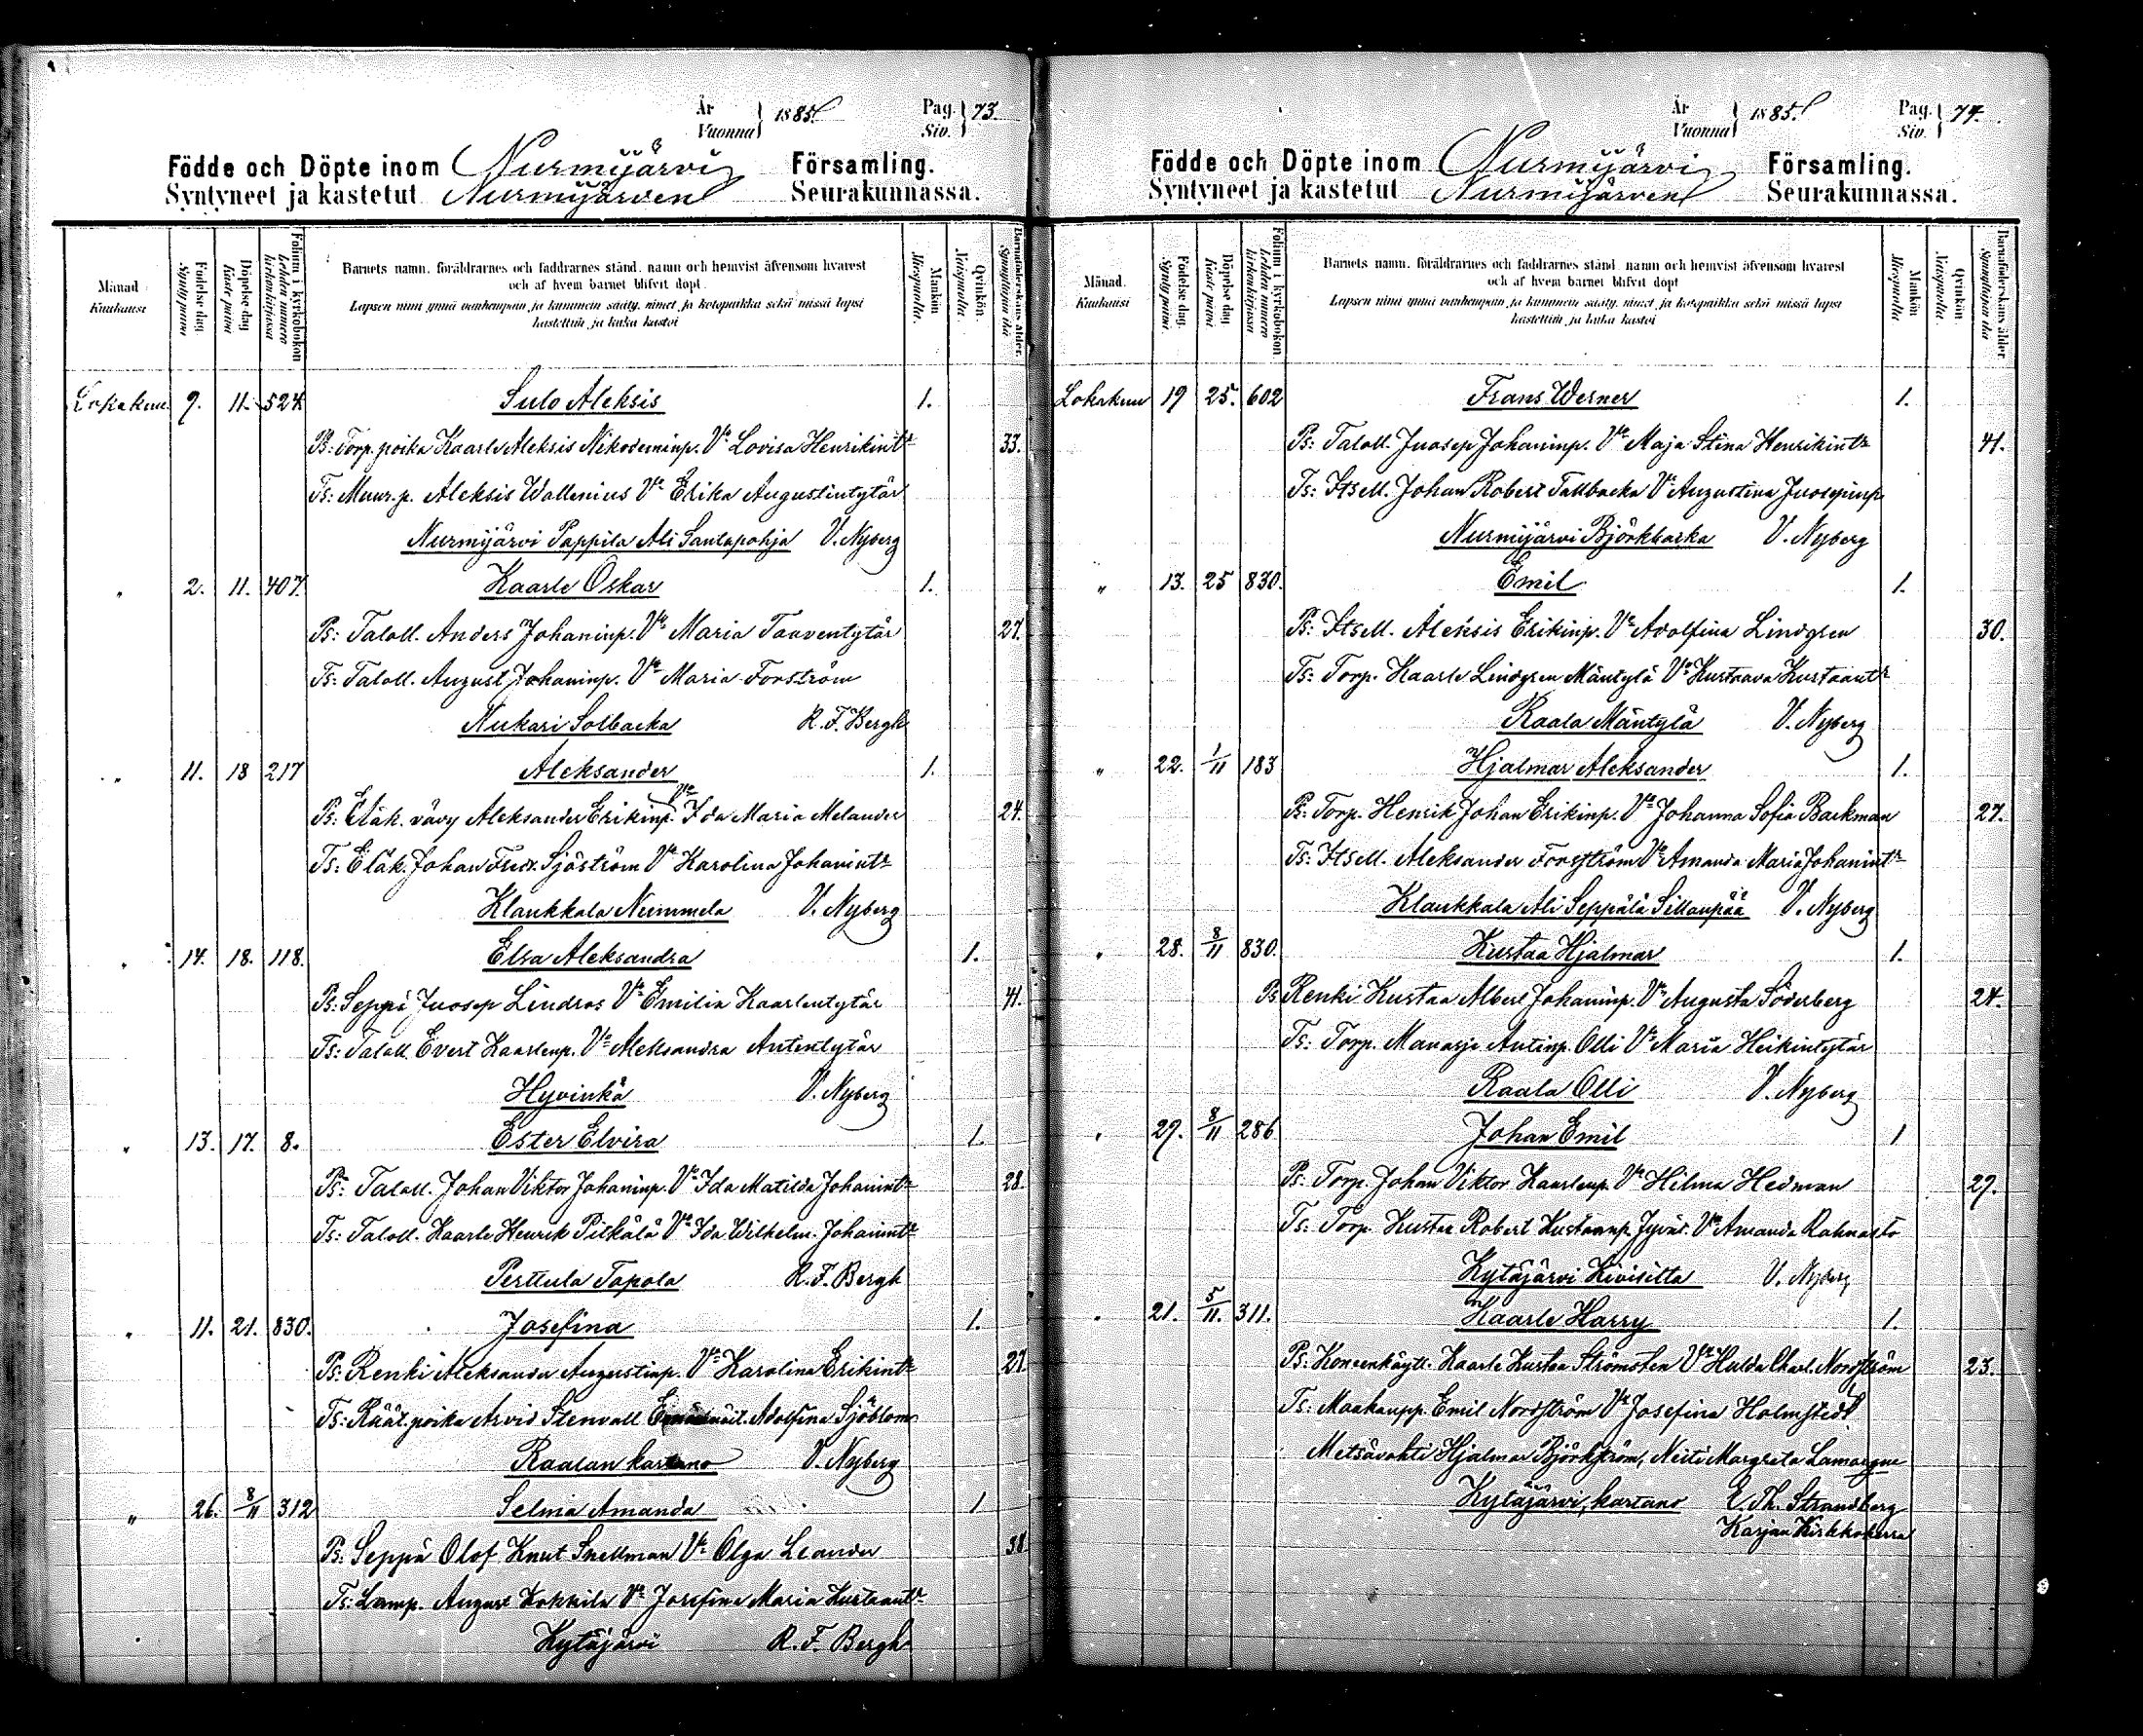 År Vuonna } 1885. Pag. Siv. } 73.
Födde och Döpte inom Nurmijärvi Församling.
Syntyneet ja kastetut Nurmijärven Seurakunnassa.
Månad Kuukausi
Födelse dag. Synty päivä
Döpelse dag Kaste päivä
Folium i kyrkoboken Lehden numero kirkonkirjassa
Barnets namn, föräldrarnes och faddrarnes stånd, namn och hemvist äfvensom hvarest
och af hvem barnet blifvit döpt.
Lapsen nimi ynnä vanhempain ja kummein sääty, nimet ja kotopaikka sekä missä lapsi
kastettiin ja kuka kastoi
Mankön Miespuolta.
Qvinkön. Naispuolta.
Barnaföderskans ålder. Synnyttäjän ikä
Lokakuu 9. 11. 524 Sulo Aleksis 1.
Ps: Torp. poika Kaarle Aleksis Nikodeminp. Vo Lovisa Henrikintr 33.
Ts: Muur. p. Aleksis Wallenius Vo Erika Augustintytär
Nurmijärvi Pappila Ali Santapohja V. Nyberg
" 2. 11. 407. Kaarle Oskar 1.
Ps: Taloll. Anders Johaninp. Vo Maria Taaventytär 27.
Ts: Taloll. August Johaninp. Vo Maria Forström
Nukari Solbacka R. F. Bergh
" 11. 18 217 Aleksander 1.
Ps: Eläk. vävy Aleksander Erikinp. Vo Ida Maria Melander 24.
Ts: Eläk. Johan Fredr. Sjöström Vo Karolina Johanintr
Klaukkala Nummela V. Nyberg
" 14. 18. 118. Elsa Aleksandra 1.
Ps: Seppä Juosep Lindros Vo Emilia Kaarlentytär 41.
Ts: Taloll Evert Kaarlenp. Vo Aleksandra Antintytär
Hyvinkä V. Nyberg
" 13. 17. 8. Ester Elvira 1.
Ps: Taloll. Johan Viktor Johaninp. Vo Ida Matilda Johanintr 28.
Ts: Taloll. Kaarle Henrik Pitkälä Vo Ida Wilhelm. Johanintr
Perttula Tapola R. F. Bergh
" 11. 21. 830. Josefina 1.
Ps: Renki Aleksander Augustinp. Vo Karolina Erikintr 27.
Ts: Räät. poika Arvid Stenvall Adolfina Sjöblom
Raalan kartano V. Nyberg
" 26. 8/11 312 Selma Amanda 1
Ps: Seppä Olof Knut Snellman Vo Olga Leander 38
Ts: Lamp. August Kokkila Vo Josefina Maria Kustaantr
Kytäjärvi R. F. Bergh
År Vuonna } 1885. Pag. Siv. } 74.
Födde och Döpte inom Nurmijärvi Församling.
Syntyneet ja kastetut Nurmijärven Seurakunnassa.
Månad. Kuukausi
Födelse dag. Synty päivä.
Döpelse dag Kaste päivä.
Folium i kyrkoboken Lehden numero kirkonkirjassa
Barnets namn, föräldrarnes och faddrarnes stånd, namn och hemvist äfvensom hvarest
och af hvem barnet blifvit döpt
Lapsen nimi ynnä vanhempain ja kummein sääty, nimet ja kotopaikka sekä missä lapsi
kastettiin ja kuka kastoi
Mankön Miespuolta
Qvinkön. Naispuolta.
Barnaföderskans ålder Synnyttäjän ikä
Lokakuu 19 25. 602 Frans Werner 1.
Ps: Taloll. Juosep Johaninp. Vo Maja Stina Henrikintr 41.
Ts: Itsell. Johan Robert Tallbacka Vo Augustina Juosepinp
Nurmijärvi Björkbacka V. Nyberg
" 13. 25 830. Emil 1.
Ps: Itsell. Aleksis Erikinp. Vo Adolfina Lindgren 30.
Ts: Torp. Kaarle Lindgren Mäntylä Vo Kustaava Kustaantr
Raala Mäntylä V. Nyberg
" 22. 1/11 183 Hjalmar Aleksander 1.
Ps: Torp. Henrik Johan Erikinp. Vo Johanna Sofia Backman 27.
Ts: Itsell. Aleksander Forsström Vo Amanda Maria Johanintr
Klaukkala Ali Seppälä Sillanpää V. Nyberg
" 28. 8/11 830. Kustaa Hjalmar 1.
Ps Renki Kustaa Albert Johaninp. Vo Augusta Söderberg 24.
Ts: Torp. Manasje Antinp. Olli Vo Maria Heikintytär
Raala Olli V. Nyberg
" 29. 8/11 286 Johan Emil 1
Ps: Torp. Johan Viktor Kaarlenp. Vo Hilma Hedman 29.
Ts: Torp. Kustaa Robert Kustaanp. Jyväs. Vo Amanda Rahnasto
Kytäjärvi Kivisilta V. Nyberg
" 21. 5/11. 311. Kaarle Harry 1.
Ps: Koneenkäytt. Kaarle Kustaa Strömsten Vo Hulda Charl. Nordström 23.
Ts: Maakaupp. Emil Nordström Vo Josefina Holmstedt
Metsävahti Hjalmar Björkström, Neiti Margreta Lamargue
Kytäjärvi, kartano E. Th. Strandberg
Karjan Kirkkoherra